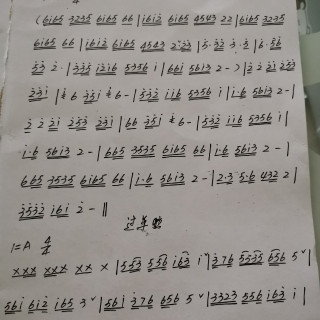 (6165 3235 6165 66 | i6i2 6165 4543 22 | 6165 3235
6165 66 | i6i2 6165 4543 2·23 | 5·32 3·5 | 6·56
53 2· | 335 i2i6 5356 i | 66i 5613 2 - ) | 2 2 2i 253
23i | 6 35i 6 - | 532 ii6 5356 i | i·6 5613 2 - |
2 2 2i 253 23i | 66 35i 6 - | 532 ii6 5356 i |
i·6 5613 2 - | 665 3535 6165 66 | i·6 5613 2 - |
665 3535 6165 66 | i·6 5613 2 - | 2·3 5·6 432 2 |
3532 i6i 2 - ‖
过单
1=A 4/4
××× ××× ×× × | 553 556 i63 i ˅ | 376 5535 656 5 ˅ |
56i 6i2 i65 3 ˅ | 56i 376 656 5 ˅ | 3323 556 i63 i |